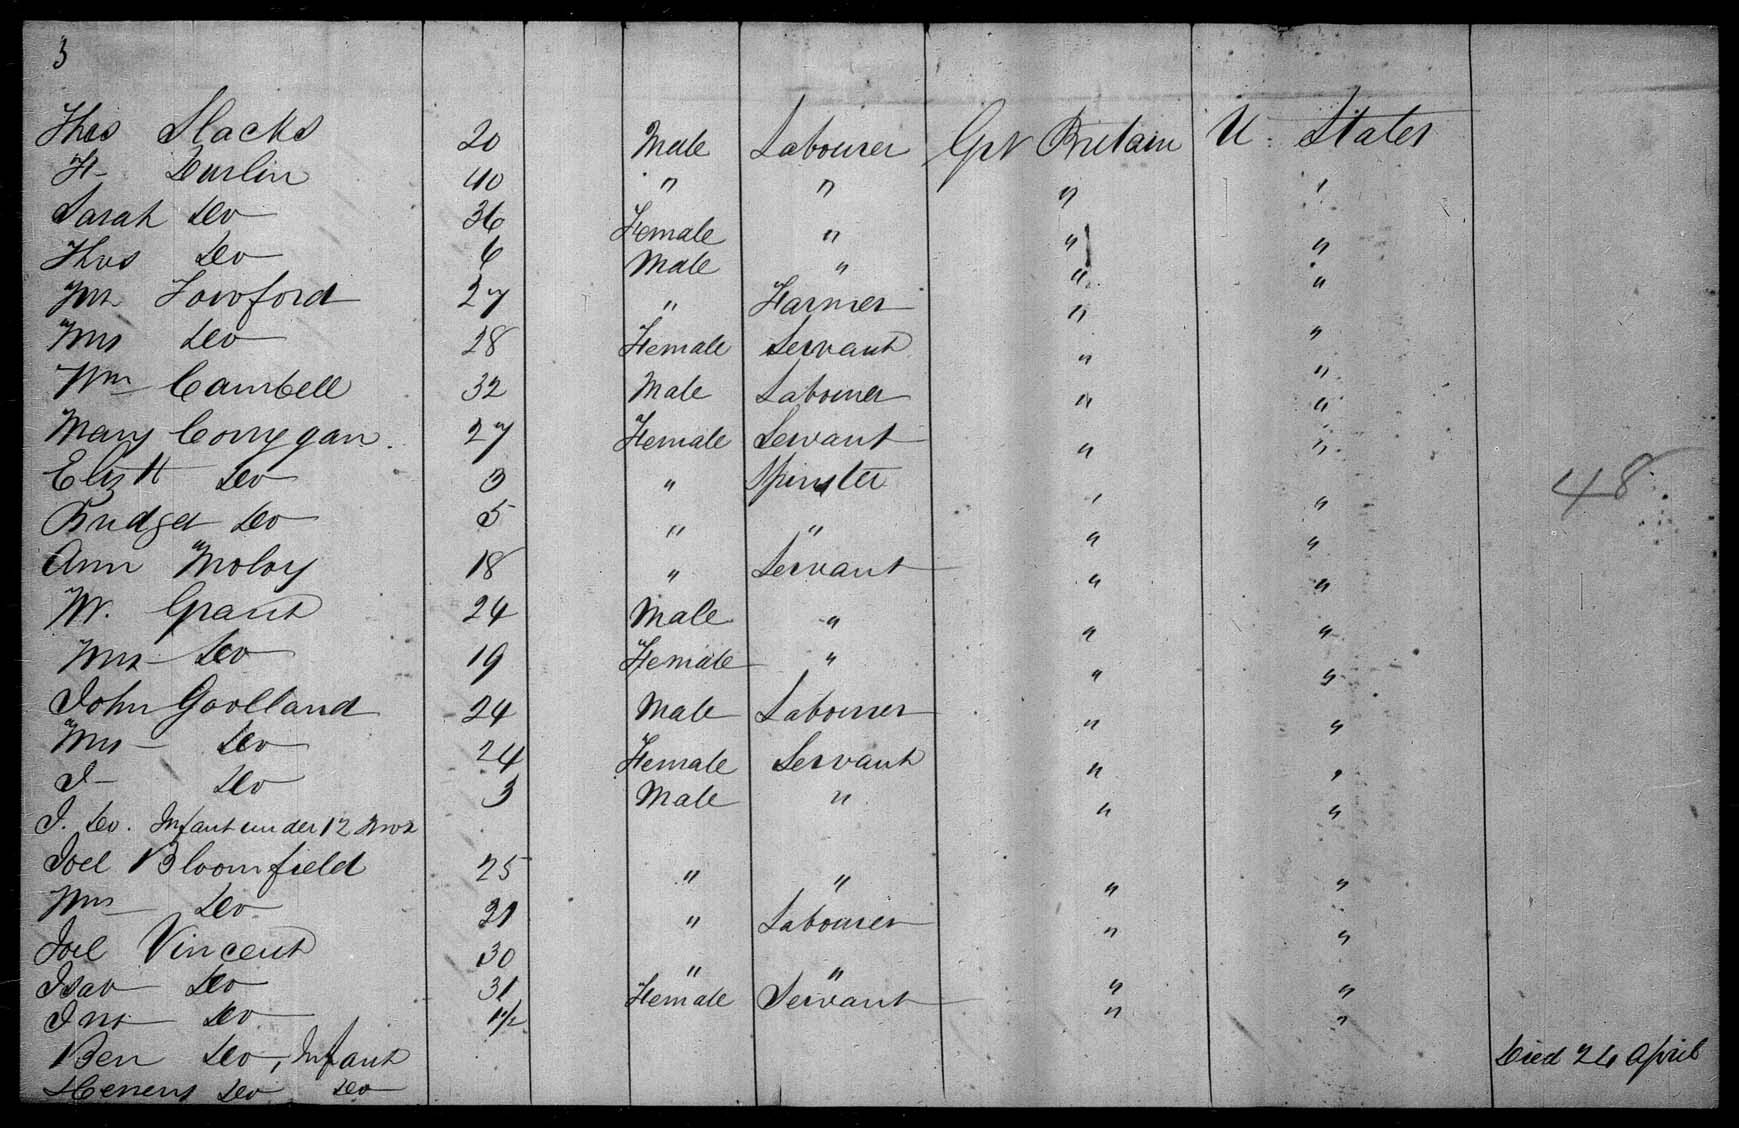 3
Thos Slacks 20 Male Labourer Grt Britain U. States
H- Durlin 40 " " " "
Sarah Do 36 Female " " "
Thos Do 6 Male " " "
Mr Lowford 27 " Farmer " "
Mrs Do 28 Female Servant " "
Wm Cambell 32 Male Labourer " "
Mary Corrygan 27 Female Servant " "
Elizth Do 3 " Spinster " "
Bridget Do 5 " " " "
Ann Moloy 18 " Servant " "
W. Grant 24 Male " " "
Mrs Do 19 Female " " "
John Goolland 24 Male Labourer " "
Mrs Do 24 Female Servant " "
J- Do 3 Male " " "
J. Do. Infant under 12 Mos
Joel Bloomfield 25 " " " "
Mrs Do 21 " Labourer " "
Joel Vincent 30 " " " "
Isab Do 31 Female Servant " "
Jno Do 1 1/2
Ben Do, Infant Died 26 April
Do Do
48